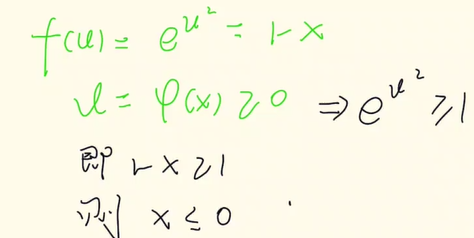 f(u) = e^{u^2} = 1-x
u = φ(x) ≥ 0 ⇒ e^{u^2} ≥ 1
即 1-x ≥ 1
则 x ≤ 0